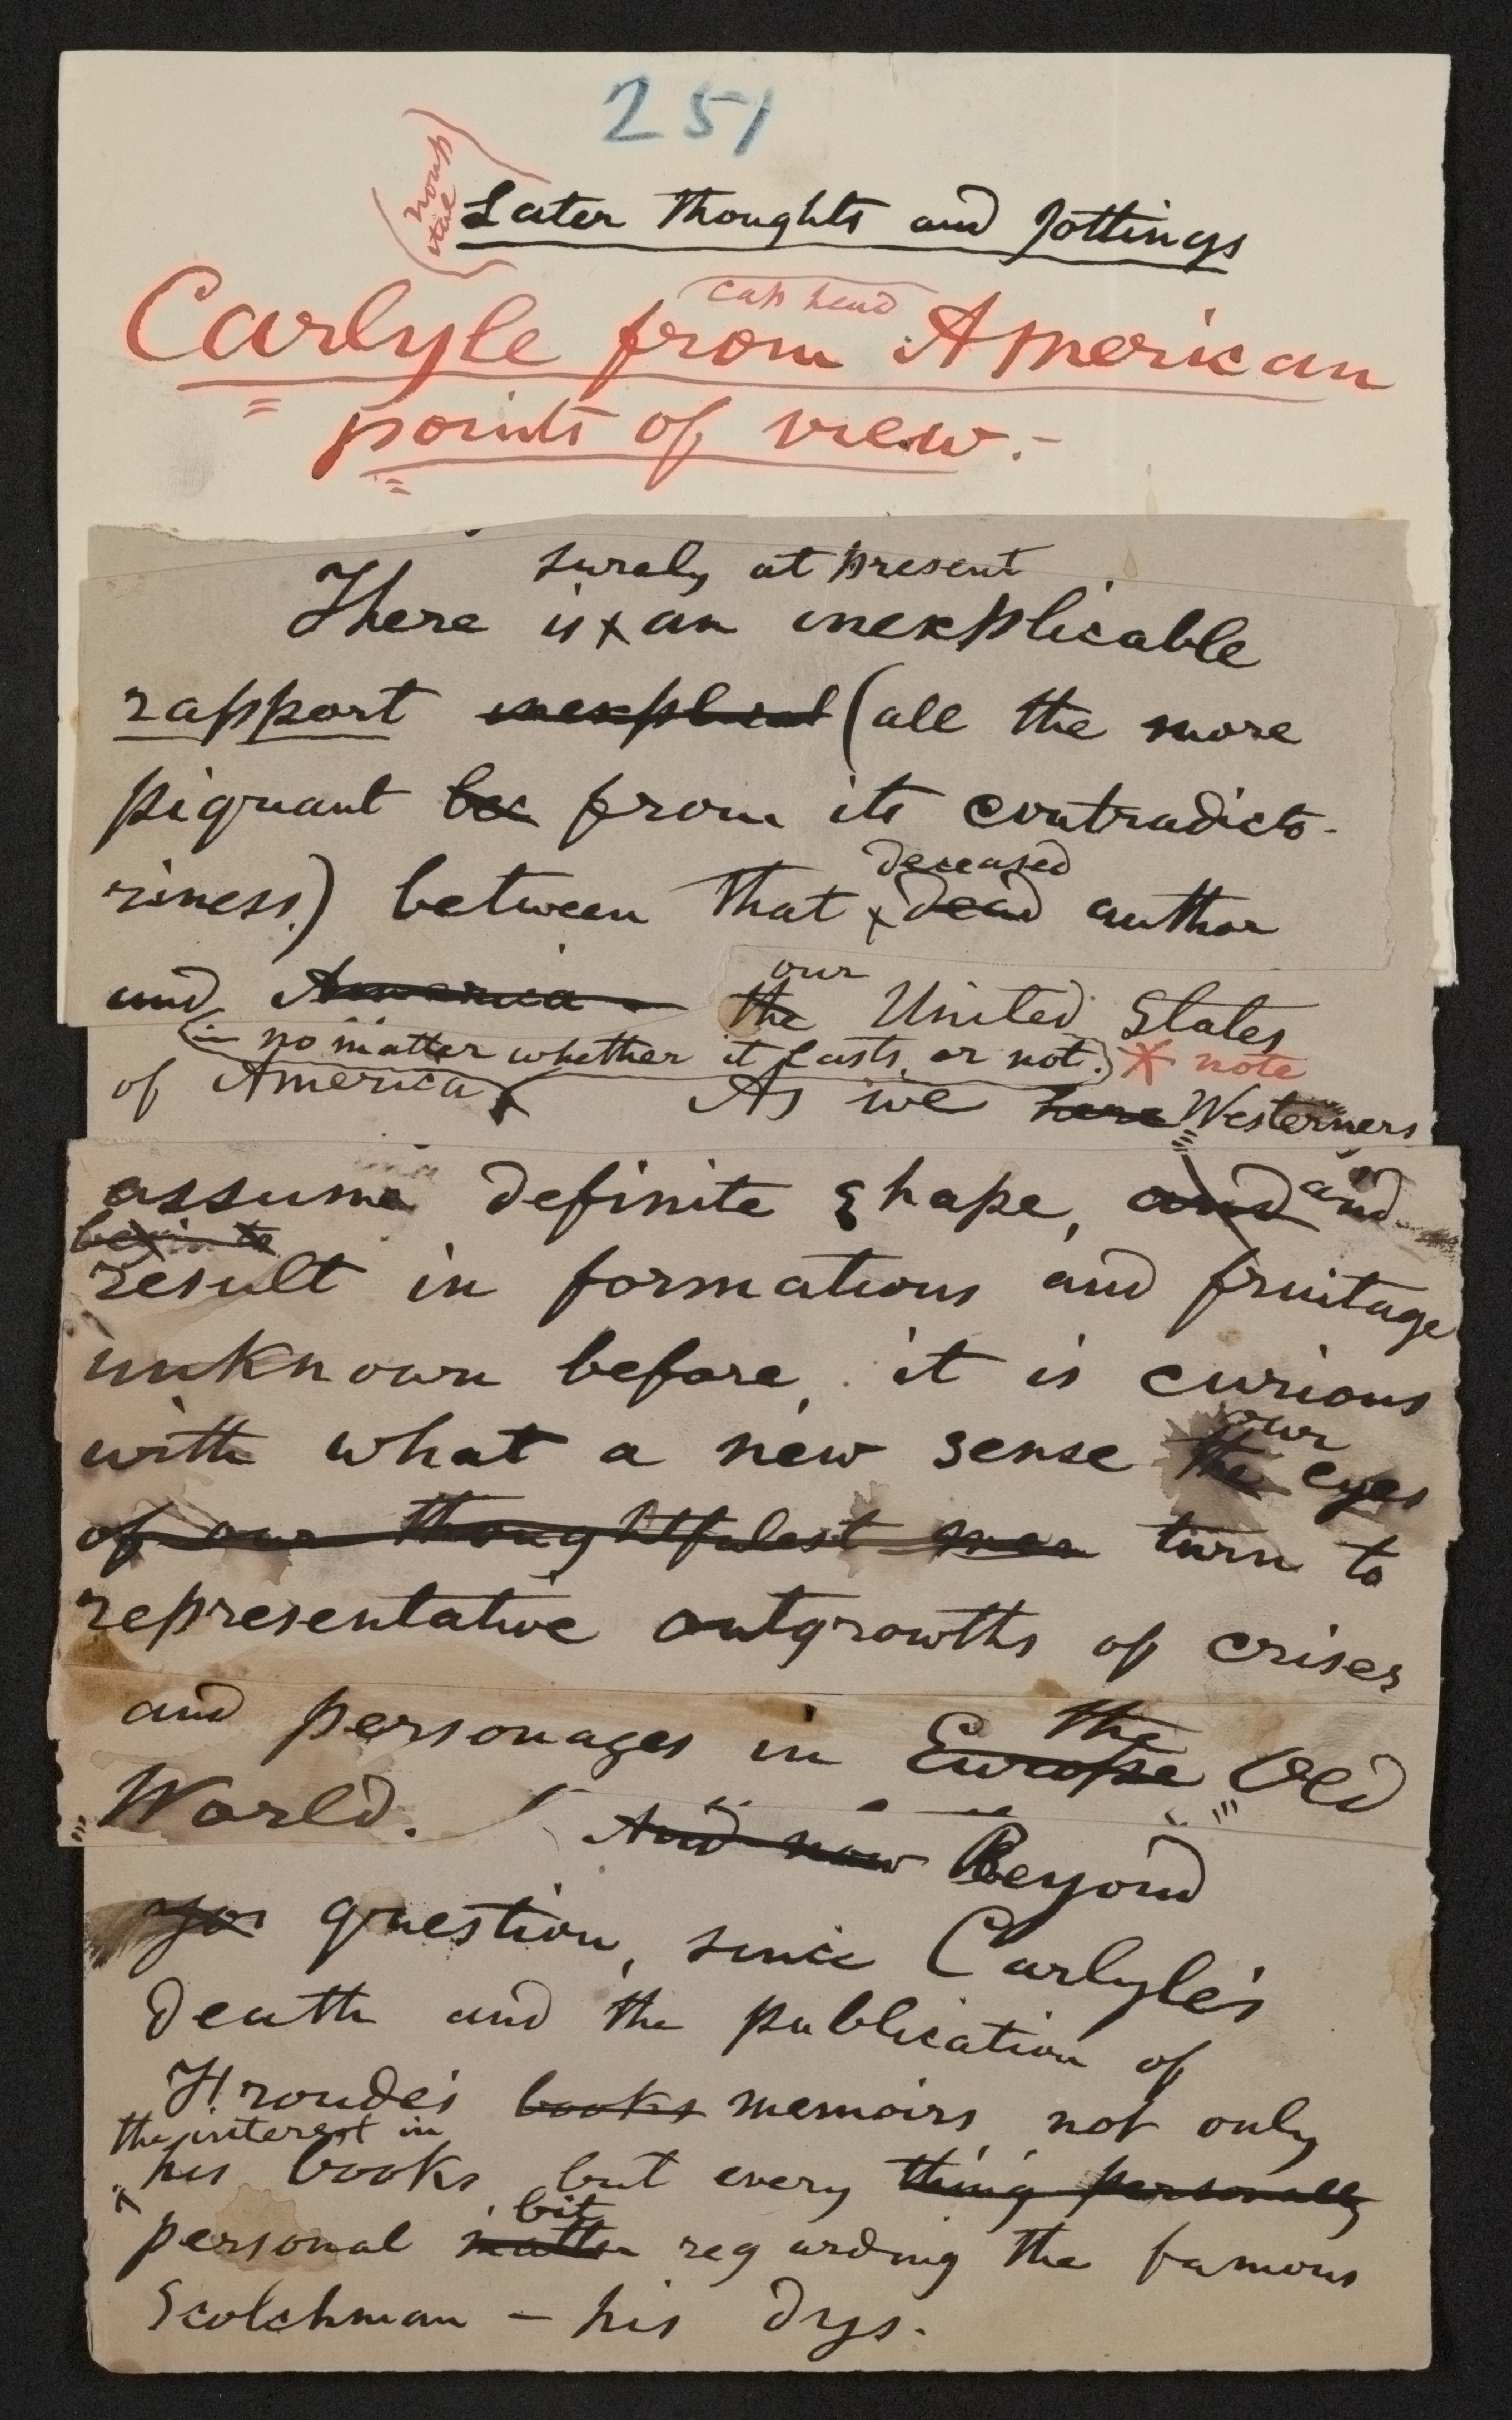 251
Later Thoughts and Jottings
cap head
Carlyle from American
points of view.-
surely at present
There is x an inexplicable
rapport inexplical (all the more
piquant bec from its contradicto-
riness.) between that x dead author
deceased
and America — the United States
our
(— no matter whether it lasts or not.) * note
of America x As we here Westerners
assume definite shape, and and
begin to
result in formations and fruitage
unknown before, it is curious
with what a new sense the eyes
our
of our thoughtfulest men turn to
representative outgrowths of crises
and personages in Europe Old
the
World. And now Beyond
question, since Carlyle's
death and the publication of
Froude's books memoirs not only
the interest in
x his books, but every thing personally
bit
personal matter regarding the famous
Scotchman — his dys.